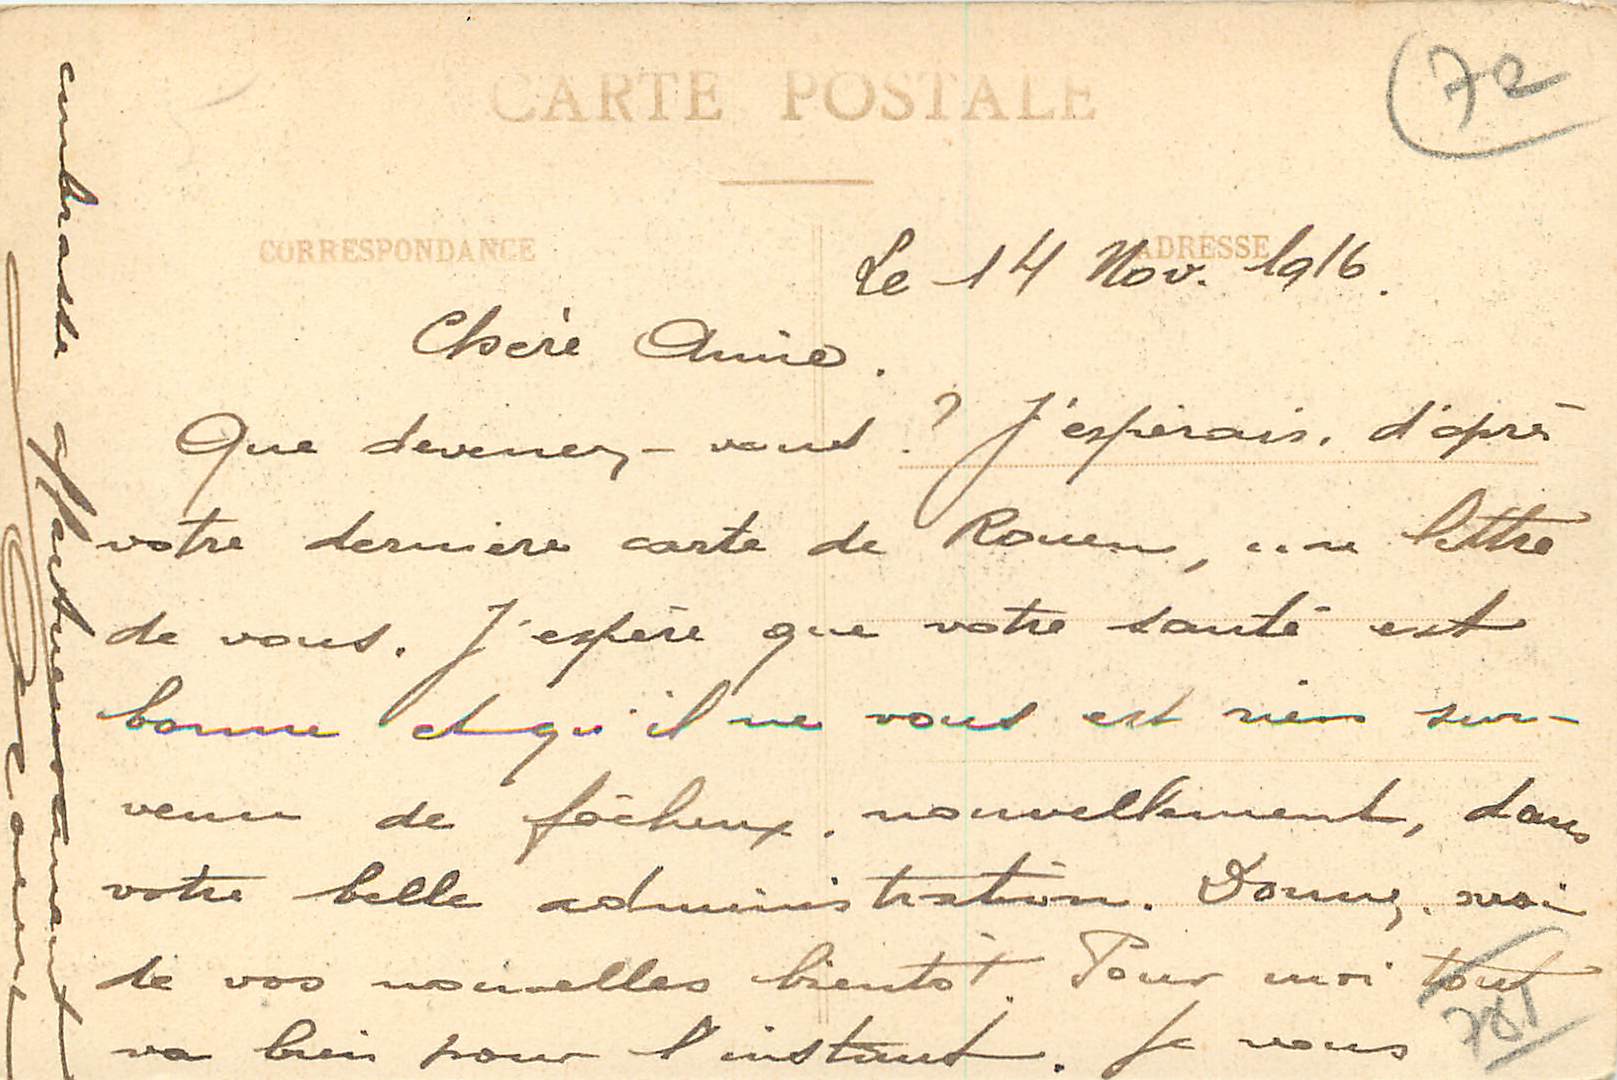 CARTE POSTALE
72
CORRESPONDANCE
ADRESSE
Le 14 Nov. 1916.
Chère Amie.
Que devenez-vous ? J'espérais, d'après
votre dernière carte de Rouen, une lettre
de vous. J'espère que votre santé est
bonne et qu'il ne vous est rien sur-
venu de fâcheux, nouvellement, dans
votre belle administration. Donnez-moi
de vos nouvelles bientôt. Pour moi tout
va bien pour l'instant. Je vous
embrasse affectueusement